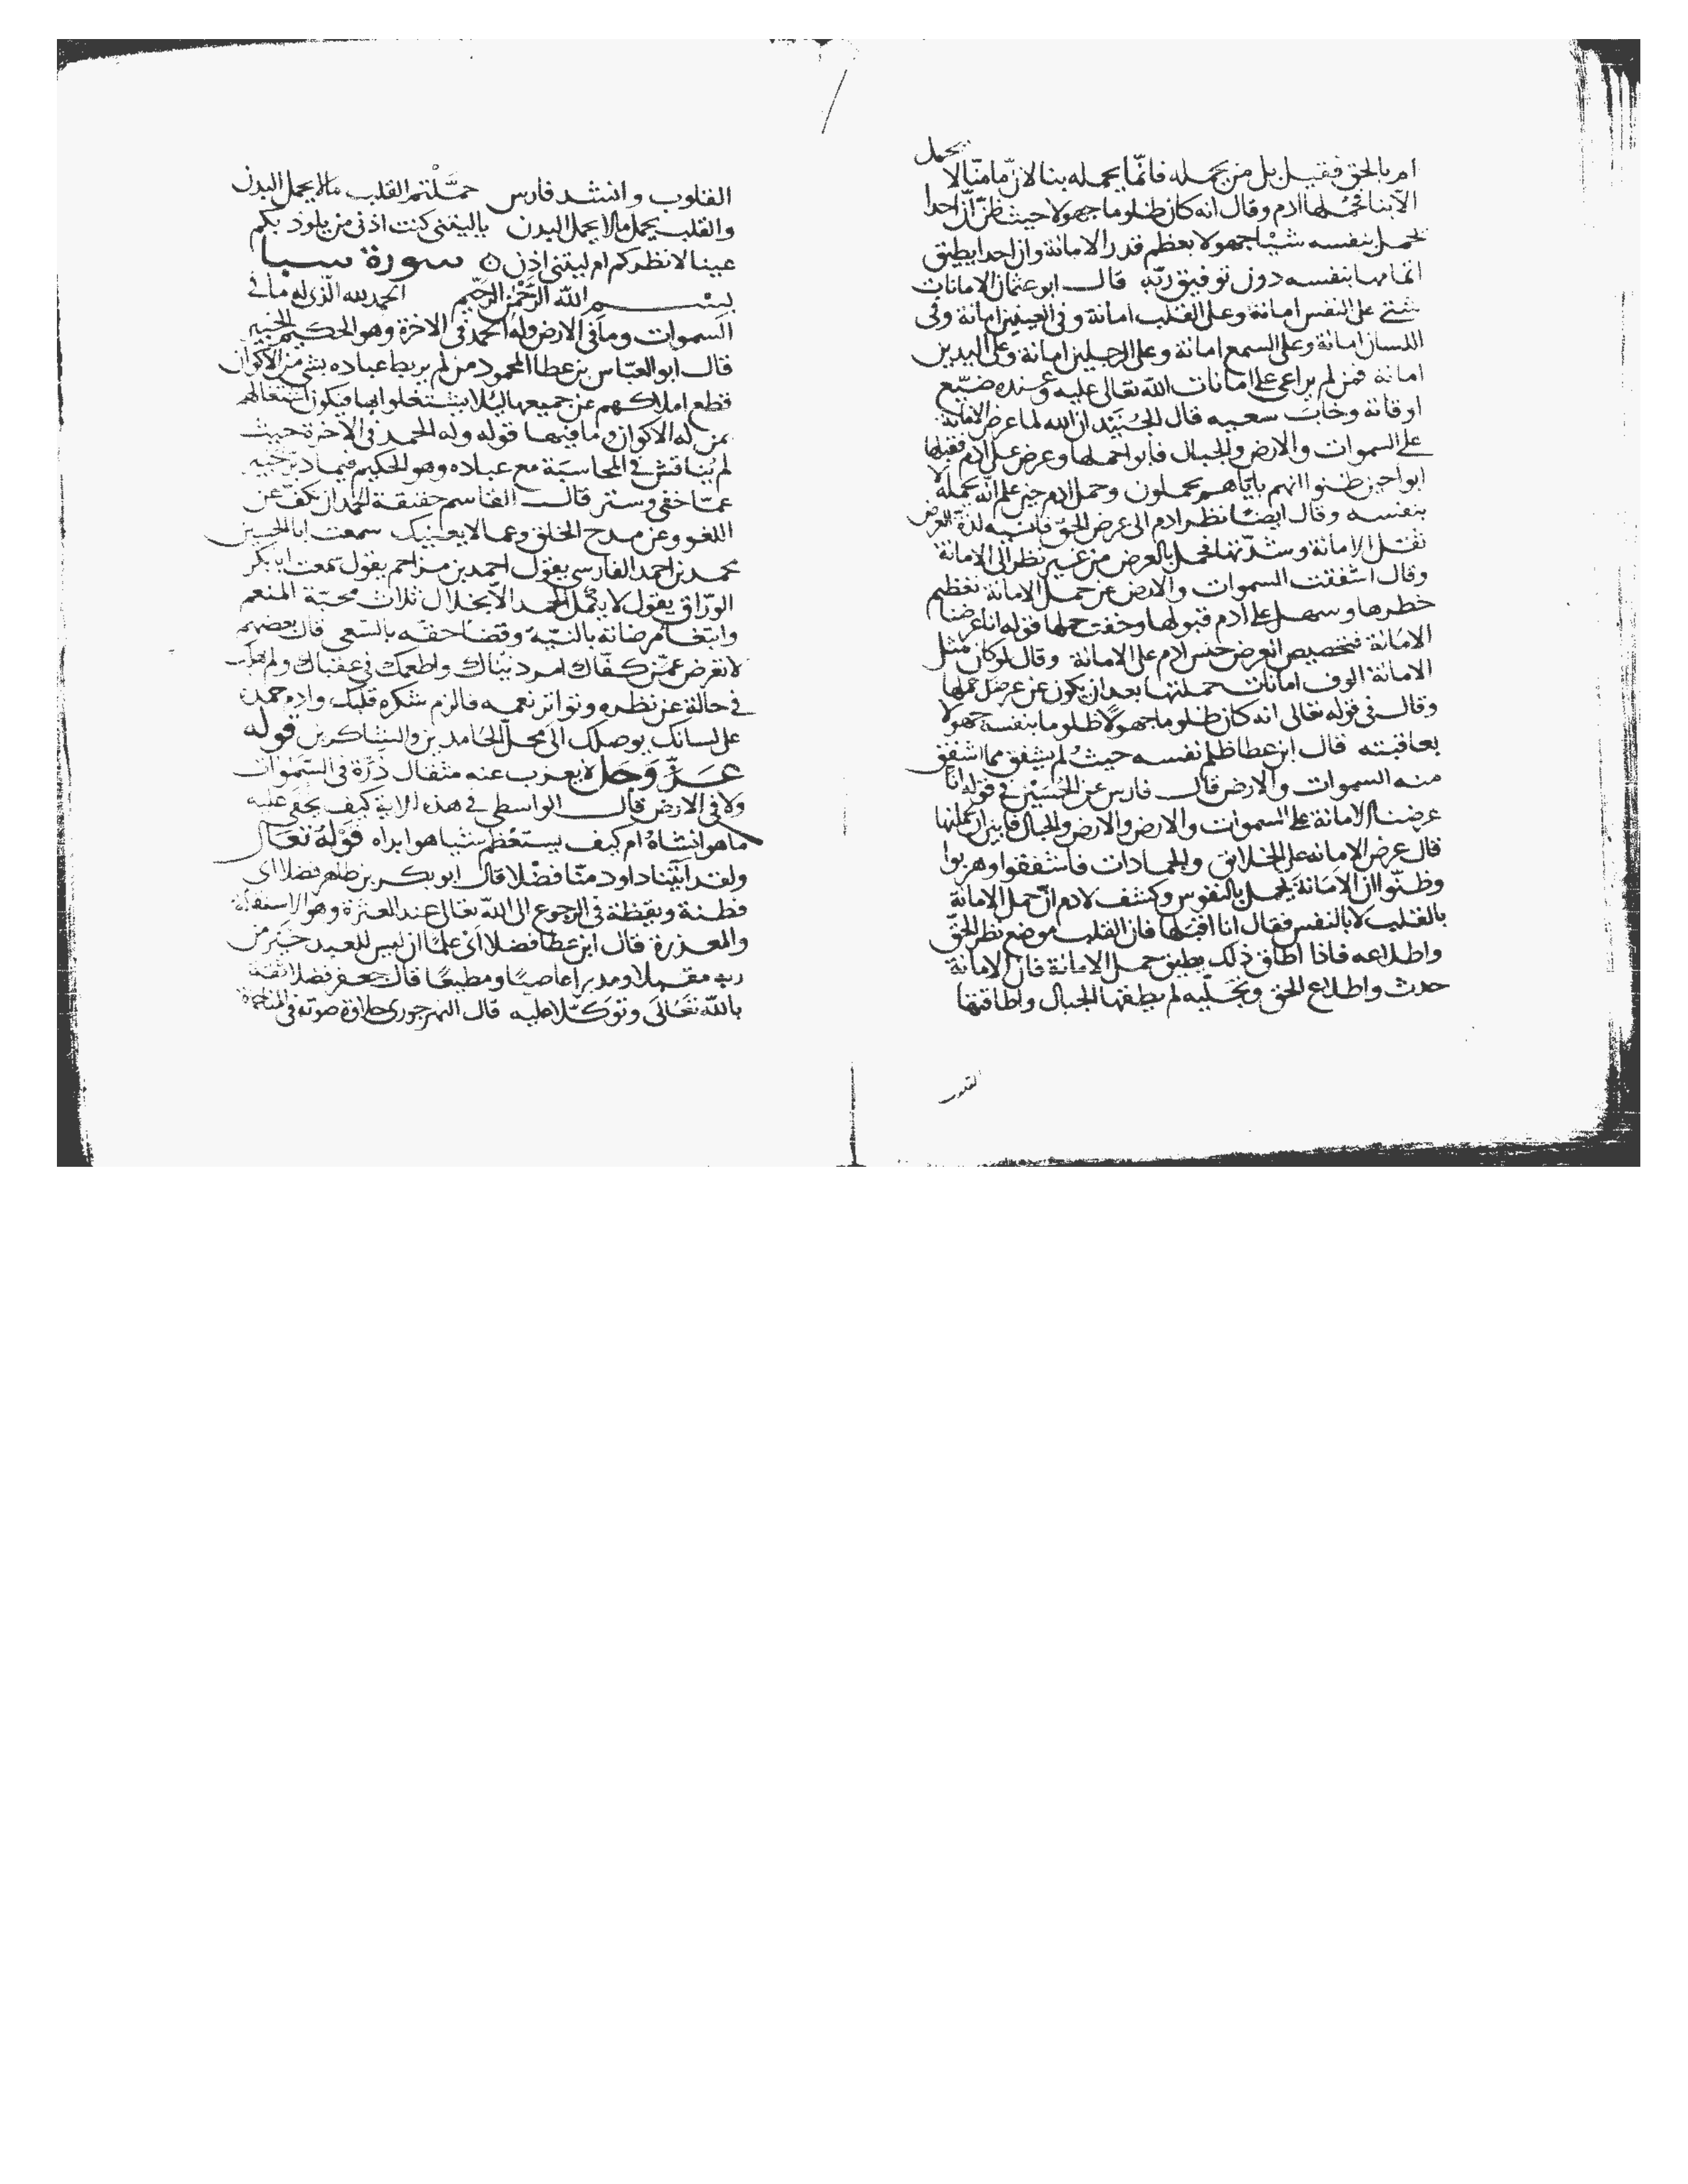 يحمل
ام بالحق فقيل بل من يحمله فانما يحمله بنا لان ما منا لا
الا بنا فحملها ادم وقال انه كان ظلوما جهولا حيث ظن ان احدا
يحمل بنفسه شيا جهولا بعظم قدر الامانة وان احدا يطيق
اتمامها بنفسه دون توفيق ربه قال ابو عثمان الامانات
شتى على النفس امانة وعلى القلب امانة وفى العينين امانة وفى
اللسان امانة وعلى السمع امانة وعلى الرجلين امانة وعلى اليدين
امانة فمن لم يراعى على امانات الله تعالى عليه وعنده ضيع
اوقاته وخاب سعيه قال الجنيد ان الله لما عرض الامانة
على السموات والارض والجبال فابوا حملها وعرض على ادم فقبلها
ابوا حين ظنوا انهم باياهم يحملون وحمل ادم حين علم انه يحمله لا
بنفسه وقال ايضا نظر ادم الى عرض الحق فانسيه لذة العرض
ثقل الامانة وشدتها فحمل بالعرض من غير نظر الى الامانة
وقال اشفقت السموات والارض عن حمل الامانة تعظيم
خطرها وسهل على ادم قبولها وخفت حملها قوله انا عرضنا
الامانة فتخصيص العرض خبس ادم على الامانة وقال لو كان مثل
الامانة الوف امانات حملتها بعد ان يكون عن عرض حملها
وقال فى قوله تعالى انه كان ظلوما جهولا ظلوما بنفسه جهولا
بعاقبته قال ابن عطا ظلم نفسه حيث لم يشفق مما اشفق
منه السموات والارض قال فارس عن الحسين فى قوله انا
عرضنا الامانة على السموات والارض والارض والجبال فابين ان يحملنها
قال عرض الامانه على الخلائق والجمادات فاشفقوا وهربوا
وظنوا ان الامانة يحمل بالنفوس وكشف لادم ان حمل الامانة
بالقلب لا بالنفس فقال انا اقبلها فان القلب موضع نظر الحق
واطلاعه فاذا اطاق ذلك يطيق حمل الامانة فان الامانة
حدث واطلاع الحق وتجليه لم يطقها الجبال واطاقتها
القلوب
القلوب وانشد فارس حملتم القلب مالا يحمل البدن
والقلب يحمل مالا يحمل البدن ياليتنى كنت ادنى من يلوذ بكم
عينا لانظركم ام ليتنى اذن سورة سبا
بسم الله الرحمن الرحيم الحمد لله الذى له ما فى
السموات وما فى الارض وله الحمد فى الاخرة وهو الحكيم الخبير
قال ابو العباس بن عطا المحمود من لم يربط عباده بشى من الاكوان
قطع املاكهم عن جميعها ليلا يشتغلوا بها فيكون اشتغالهم
بمن له الاكوان وما فيها قوله وله الحمد فى الاخرة حيث
لم يناقش فى المحاسبة مع عباده وهو الحكيم فيما دبر خبير
عما خفى وستر قال القاسم حقيقة الحمد ان تكف عن
اللغو وعن مدح الخلق وعما لا يعنيك سمعت ابا الحسين
محمد بن احمد الفارسى يقول احمد بن مزاحم يقول سمعت ابا بكر
الوراق يقول لا يكمل الحمد الا بخلال ثلاث محبة المنعم
وابتغا مرضاته بالنية وقضا حقه بالسعى قال بعضهم
لا تعرض عمن كفاك امر دنياك واطمعك فى عقباك ولم
فى حالة عن نظره وتواتر نعمه فالزم شكره قلبك وادم حمده
على لسانك يوصلك الى محل الحامدين والشاكرين قوله
عز وجل لا يعزب عنه مثقال ذرة فى السموات
ولا فى الارض قال الواسطى فى هذه الاية كيف يخفى عليه
ما هو انشاه ام كيف يستعظم شيا هو ابراه قوله تعالى
ولقد اتينا داود منا فضلا قال ابو بكر بن طاهر فضلا اى
فطنة ويقظة فى الرجوع الى الله تعالى عند العثرة وهو الاستقالة
والمعذرة قال ابن عطا فضلا اى علما ان ليس للعبد خير من
ربه مقبلا ومدبرا عاصيا ومطيعا قال جعفر فضلا ثقة
بالله تعالى وتوكلا عليه قال النهرجورى حلاوة صوته فى المناجاة